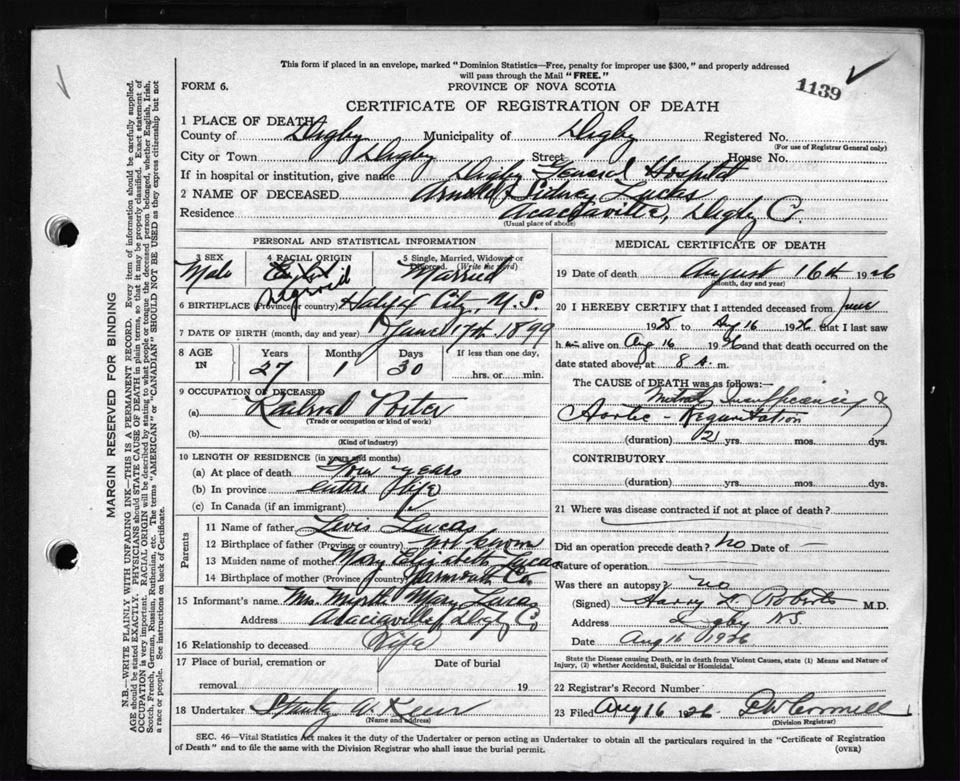 This form if placed in an envelope, marked "Dominion Statistics—Free, penalty for improper use $300," and properly addressed
will pass through the Mail "FREE."
1139
FORM 6.
PROVINCE OF NOVA SCOTIA
CERTIFICATE OF REGISTRATION OF DEATH
1 PLACE OF DEATH
County of Digby Municipality of Digby Registered No.
(For use of Registrar General only)
City or Town Digby Street House No.
If in hospital or institution, give name Digby General Hospital
2 NAME OF DECEASED Arnold Sidney Lucas
Residence Acaciaville, Digby Co.
(Usual place of abode)
PERSONAL AND STATISTICAL INFORMATION
3 SEX 4 RACIAL ORIGIN 5 Single, Married, Widowed or Divorced. (Write the word)
Male Married
6 BIRTHPLACE (Province or country) Halifax City, N.S.
7 DATE OF BIRTH (month, day and year) 1899
8 AGE IN Years Months Days If less than one day,
27 1 30 hrs. or min.
9 OCCUPATION OF DECEASED
(a) Porter
(Trade or occupation or kind of work)
(b)
(Kind of industry)
10 LENGTH OF RESIDENCE (in years and months)
(a) At place of death Four years
(b) In province entire life
(c) In Canada (if an immigrant)
Parents
11 Name of father Levis Lucas
12 Birthplace of father (Province or country) not known
13 Maiden name of mother Mary Elizabeth Lucas
14 Birthplace of mother (Province or country) Yarmouth Co.
15 Informant's name Mrs. Myrtle Mary Lucas
Address Acaciaville, Digby Co
16 Relationship to deceased Wife
17 Place of burial, cremation or Date of burial
removal 19
18 Undertaker Stanley W.
(Name and address)
MEDICAL CERTIFICATE OF DEATH
19 Date of death August 16th 1926
(month, day and year)
20 I HEREBY CERTIFY that I attended deceased from June
1925 to Aug 16 1926 that I last saw
h im alive on Aug 16 1926 and that death occurred on the
date stated above, at 8 a. m.
The CAUSE of DEATH was as follows:
Mitral Insufficiency &
Aortic - Regurgitation
(duration) 2 yrs. mos. dys.
CONTRIBUTORY
(duration) yrs. mos. dys.
21 Where was disease contracted if not at place of death?
Did an operation precede death? no Date of
Nature of operation
Was there an autopsy? no
(Signed) Roberts M.D.
Address Digby N.S.
Date Aug 16 1926
State the Disease causing Death, or in death from Violent Causes, state (1) Means and Nature of
Injury, (2) whether Accidental, Suicidal or Homicidal.
22 Registrar's Record Number
23 Filed Aug 16 1926
(Division Registrar)
SEC. 46—Vital Statistics Act makes it the duty of the Undertaker or person acting as Undertaker to obtain all the particulars required in the "Certificate of Registration
of Death" and to file the same with the Division Registrar who shall issue the burial permit. (OVER)
MARGIN RESERVED FOR BINDING
N.B.—WRITE PLAINLY WITH UNFADING INK—THIS IS A PERMANENT RECORD. Every item of information should be carefully supplied.
AGE should be stated EXACTLY. PHYSICIANS should STATE CAUSE OF DEATH in plain terms, so that it may be properly classified. Exact statement of
OCCUPATION is very important. RACIAL ORIGIN will be described by stating to what people or tongue the deceased person belonged, whether English, Irish,
Scotch, French, German, Russian, Ruthenian, etc. The terms "AMERICAN" or "CANADIAN" SHOULD NOT BE USED as they express citizenship but not
a race or people. See instructions on back of Certificate.